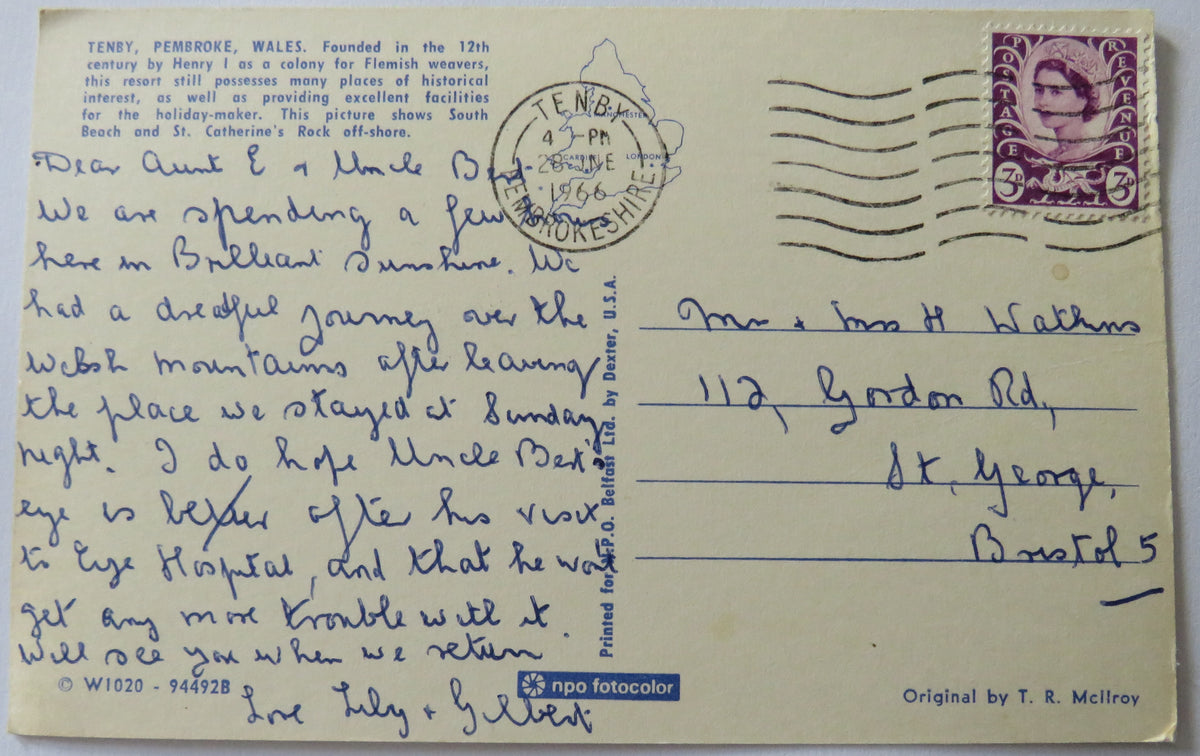 TENBY, PEMBROKE, WALES. Founded in the 12th
century by Henry I as a colony for Flemish weavers,
this resort still possesses many places of historical
interest, as well as providing excellent facilities
for the holiday-maker. This picture shows South
Beach and St. Catherine's Rock off-shore.
Dear Aunt E + Uncle Bert.
We are spending a few
here in Brilliant Sunshine. We
had a dreadful journey over the
Welsh mountains after leaving
the place we stayed at Sunday
night. I do hope Uncle Bert's
eye is better after his visit
to Eye Hospital, and that he wont
get any more trouble with it.
Will see you when we return
Love Lily + Gilbert
© W1020 - 94492B
MANCHESTER
CARDIFF
LONDON
TENBY
4 - PM
28 JNE
1966
PEMBROKESHIRE
POSTAGE
REVENUE
3D
3D
Printed for N.P.O. Belfast Ltd. by Dexter, U.S.A.
Mr + Mrs H Watkins
112, Gordon Rd.,
St. George,
Bristol 5
npo fotocolor
Original by T. R. McIlroy